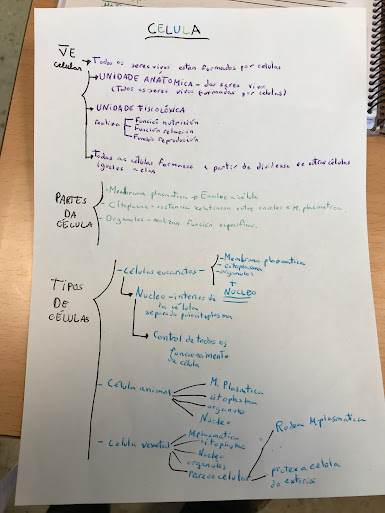 CÉLULA
TE
celular
Todos os seres vivos están formados por células
UNIDADE ANATÓMICA - dos seres vivos
(Todos os seres vivos formados por células)
UNIDADE FISIOLÓXICA
realiza
Función nutrición
Función relación
Función reprodución
Todas as células formanse a partir de división de outras células
iguales a elas
PARTES
DA
CÉLULA
-Membrana plasmática → Envolve a célula
- Citoplasma - sustancia xelatinosa entre núcleo e M. plasmática
- Organulos - realizan función específica.
TIPOS
DE
CÉLULAS
- Células eucariotas
-Membrana plasmática
- citoplasma
- organulos
+
NÚCLEO
Nucleo - interior de
la célula
separado por citoplasma
Control de todos os
funcionamento
da célula
- Célula animal
M. Plasmática
citoplasma
organulo
Nucleo
- Célula vexetal
M plasmática
citoplasma
Nucleo
organulos
Parede celular
Rodea M. plasmatica
protexe a célula
do exterior